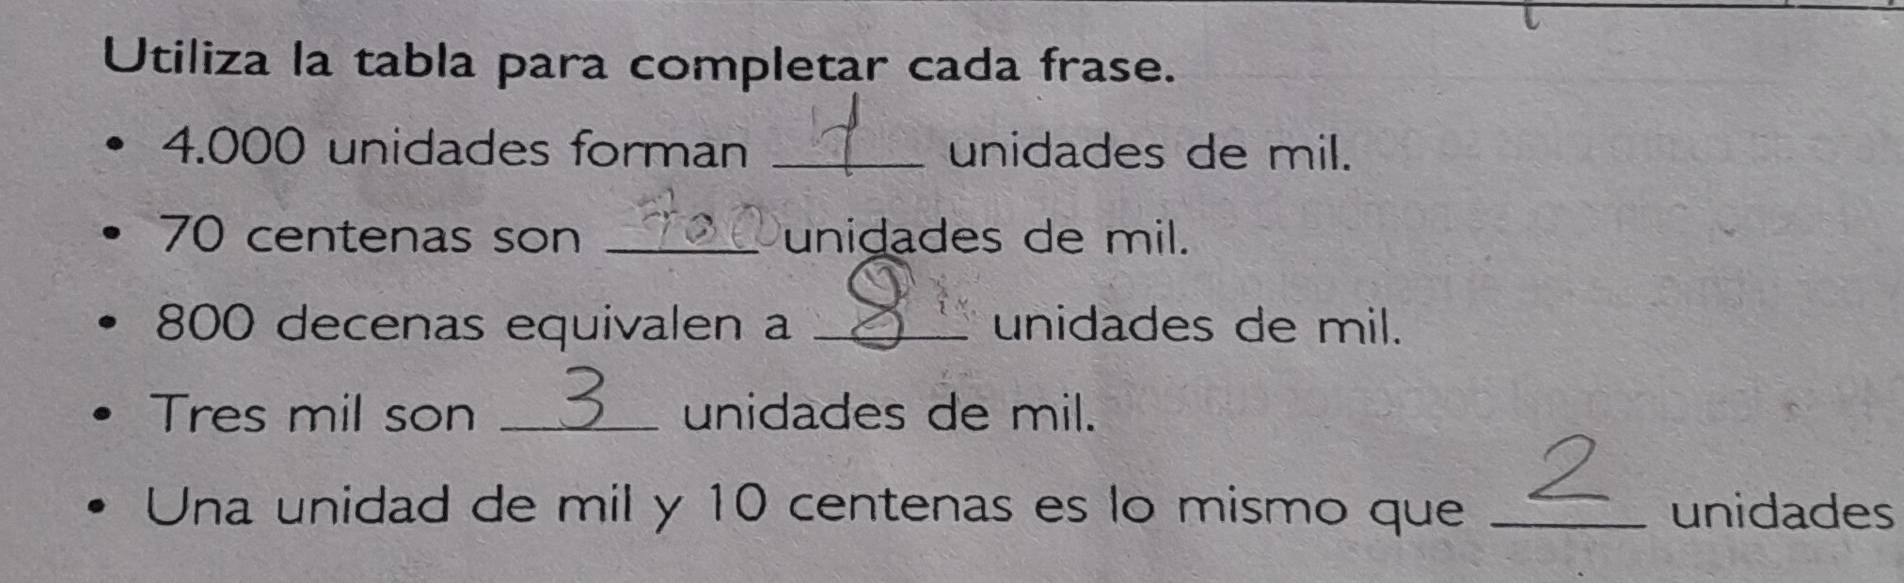 Utiliza la tabla para completar cada frase.
• 4.000 unidades forman 4 unidades de mil.
• 70 centenas son 700 unidades de mil.
• 800 decenas equivalen a 8 unidades de mil.
• Tres mil son 3 unidades de mil.
• Una unidad de mil y 10 centenas es lo mismo que 2 unidades